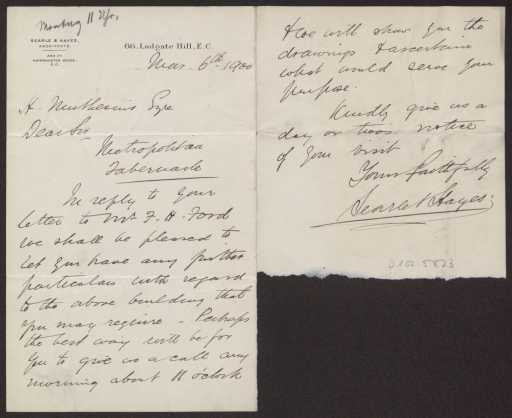 Monday 11
SEARLE & HAYES,
ARCHITECTS.
AND AT
PATERNOSTER HOUSE,
E.C.
66, Ludgate Hill, E.C.
Mar. 6th 1900
H. Muthesius Esqre
Dear Sir
Metropolitan
Tabernacle
In reply to your
letter to Mr F. H. Ford
we shall be pleased to
let you have any further
particulars with regard
to the above building that
you may require - Perhaps
the best way will be for
you to give us a call any
morning about 11 o'clock
& we will show you the
drawings & ascertain
what would serve your
purpose.
Kindly give us a
day or two's notice
of your visit
Yours faithfully
Searle & Hayes
D102-5823